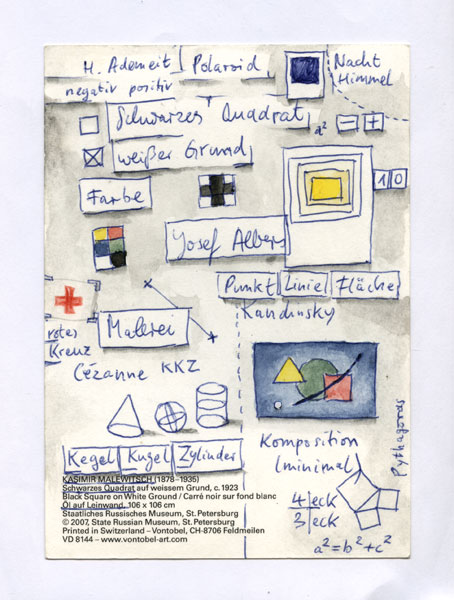 H. Ademeit Polaroid
Nacht
Himmel
negativ positiv
Schwarzes Quadrat
a²
− +
weißer Grund
1 0
Farbe
Josef Albers
Punkt Linie Fläche
Kandinsky
rotes
Kreuz
Malerei
Cézanne KKZ
Kegel Kugel Zylinder
KASIMIR MALEWITSCH (1878–1935)
Schwarzes Quadrat auf weissem Grund, c. 1923
Black Square on White Ground / Carré noir sur fond blanc
Öl auf Leinwand, 106 x 106 cm
Staatliches Russisches Museum, St. Petersburg
© 2007, State Russian Museum, St. Petersburg
Printed in Switzerland – Vontobel, CH-8706 Feldmeilen
VD 8144 – www.vontobel-art.com
Komposition
(minimal)
Pythagoras
4 eck
3 eck
a² = b² + c²